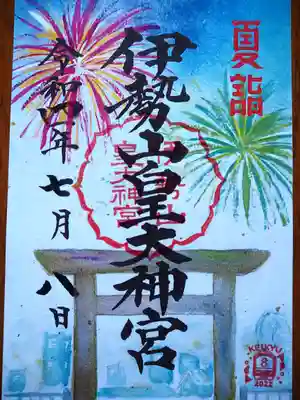 夏詣
伊勢山皇大神宮
皇大神宮
令和四年七月八日
KEIKYU
8
2022